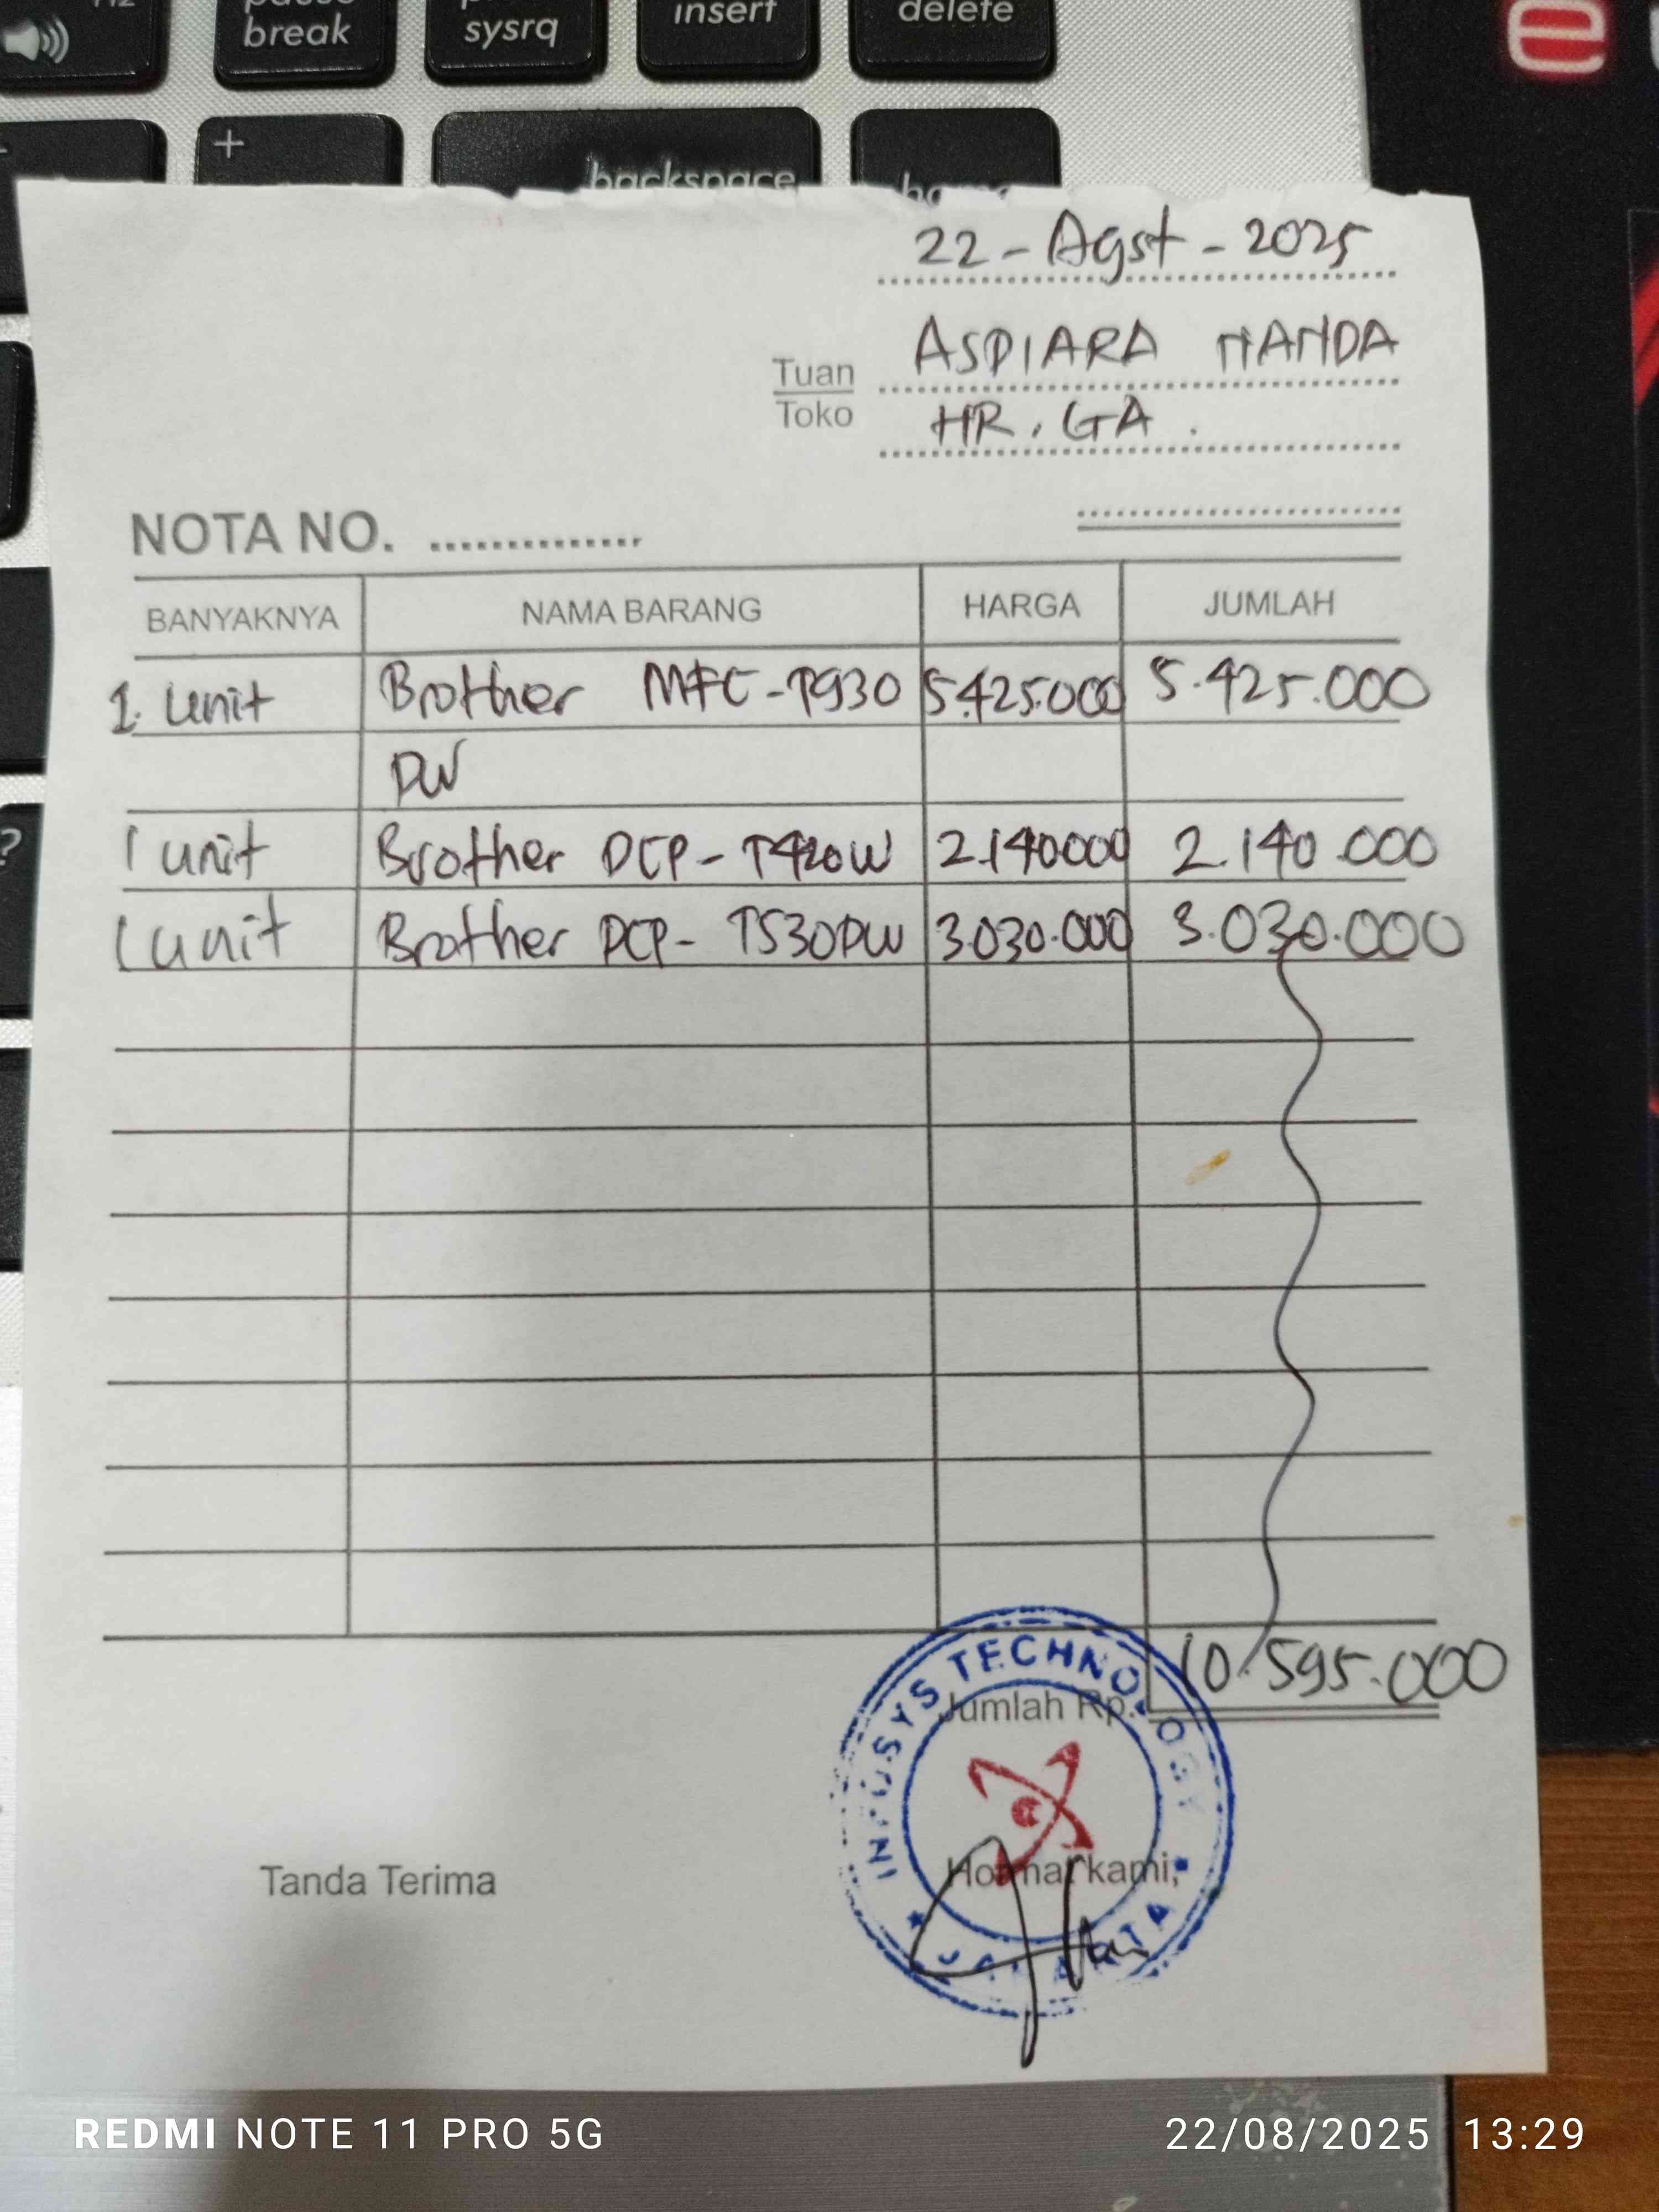 pause break
sysrq
insert
delete
+
backspace
home
?
e
22 - Agst - 2025
Tuan
Toko
ASPIARA NANDA
HR, GA.
NOTA NO. ...............
BANYAKNYA NAMA BARANG HARGA JUMLAH
1. Unit Brother MFC-T930 5.425.000 5.425.000
DW
1 unit Brother DCP- T420W 2.140000 2.140.000
1 unit Brother DCP- T530DW 3.030.000 3.030.000
Jumlah Rp. 10.595.000
INFOSYS TECHNOLOGY
JAKARTA
Tanda Terima Hormat kami,
REDMI NOTE 11 PRO 5G 22/08/2025 13:29